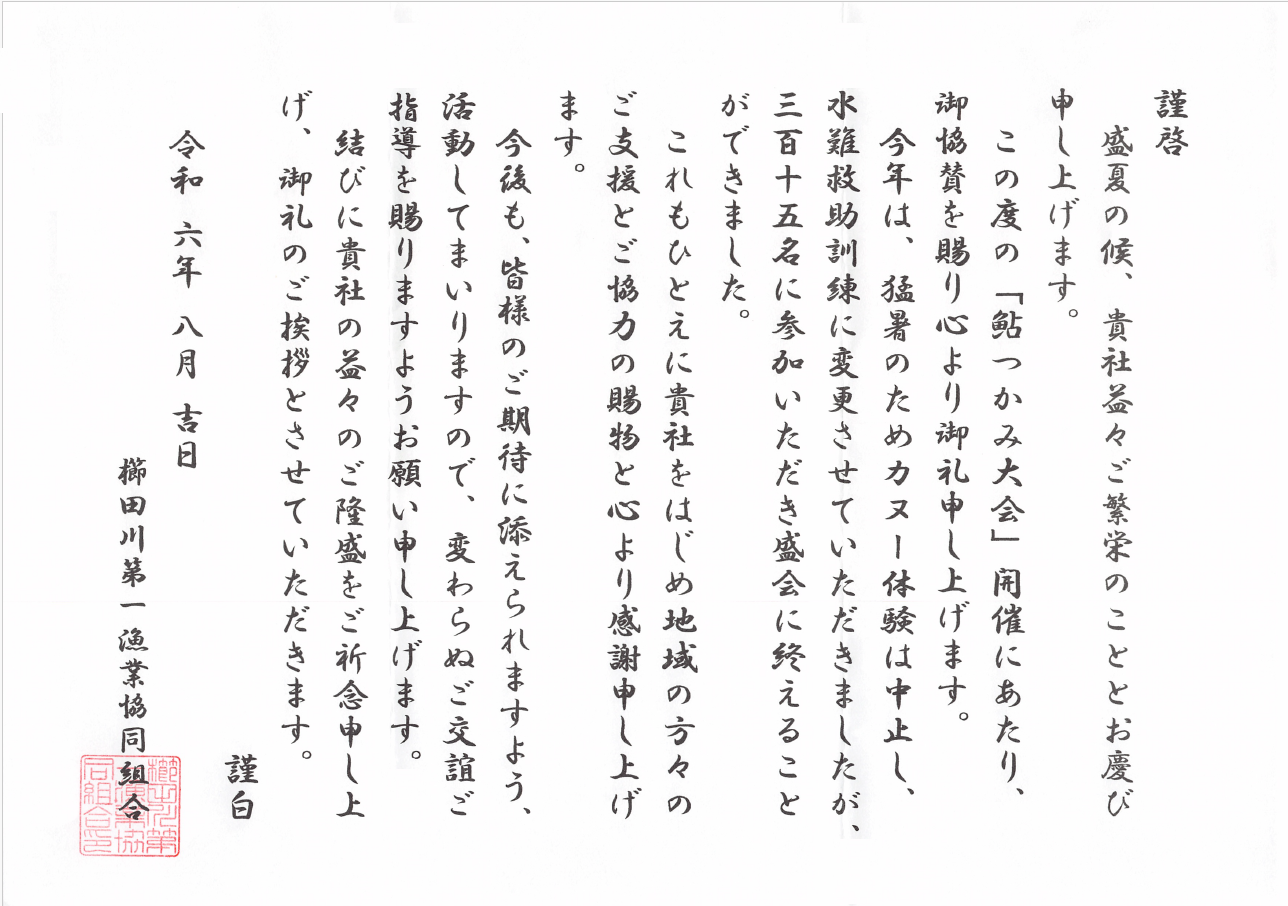 謹啓
盛夏の候、貴社益々ご繁栄のこととお慶び
申し上げます。
この度の「鮎つかみ大会」開催にあたり、
御協賛を賜り心より御礼申し上げます。
今年は、猛暑のためカヌー体験は中止し、
水難救助訓練に変更させていただきましたが、
三百十五名に参加いただき盛会に終えること
ができました。
これもひとえに貴社をはじめ地域の方々の
ご支援とご協力の賜物と心より感謝申し上げ
ます。
今後も、皆様のご期待に添えられますよう、
活動してまいりますので、変わらぬご交誼ご
指導を賜りますようお願い申し上げます。
結びに貴社の益々のご隆盛をご祈念申し上
げ、御礼のご挨拶とさせていただきます。
謹白
令和 六年 八月 吉日
櫛田川第一漁業協同組合